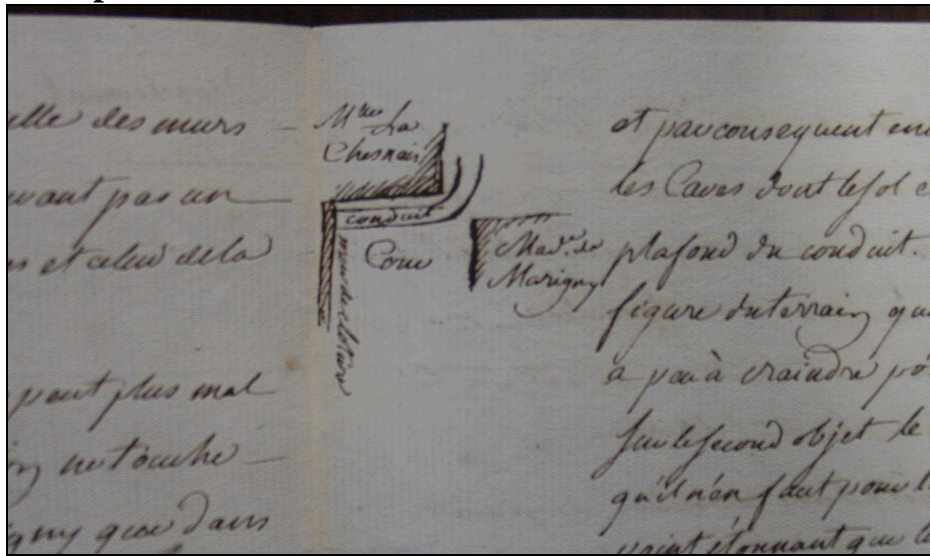 elle des murs
vant pas un
s et celui de la
peut plus mal
ne touche
gny que dans
Mme La
Chesnais
conduit
Cour
mur de cloture
Made. de
Marigny
et par consequent en
les Caves dont le sol e
plafond du conduit.
figure du terrain qu
a peu à craindre po
sur le second objet le
qu'il n'en faut pour l
étonnant que l